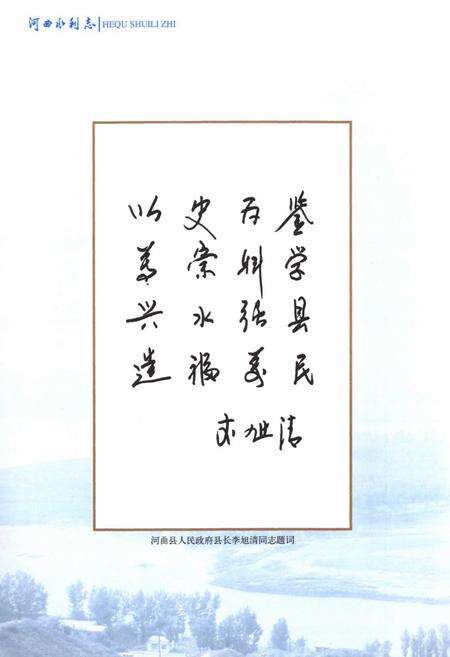 河曲水利志|HEQU SHUILI ZHI
以史为鉴
尊崇科学
兴水强县
造福万民
李旭清
河曲县人民政府县长李旭清同志题词